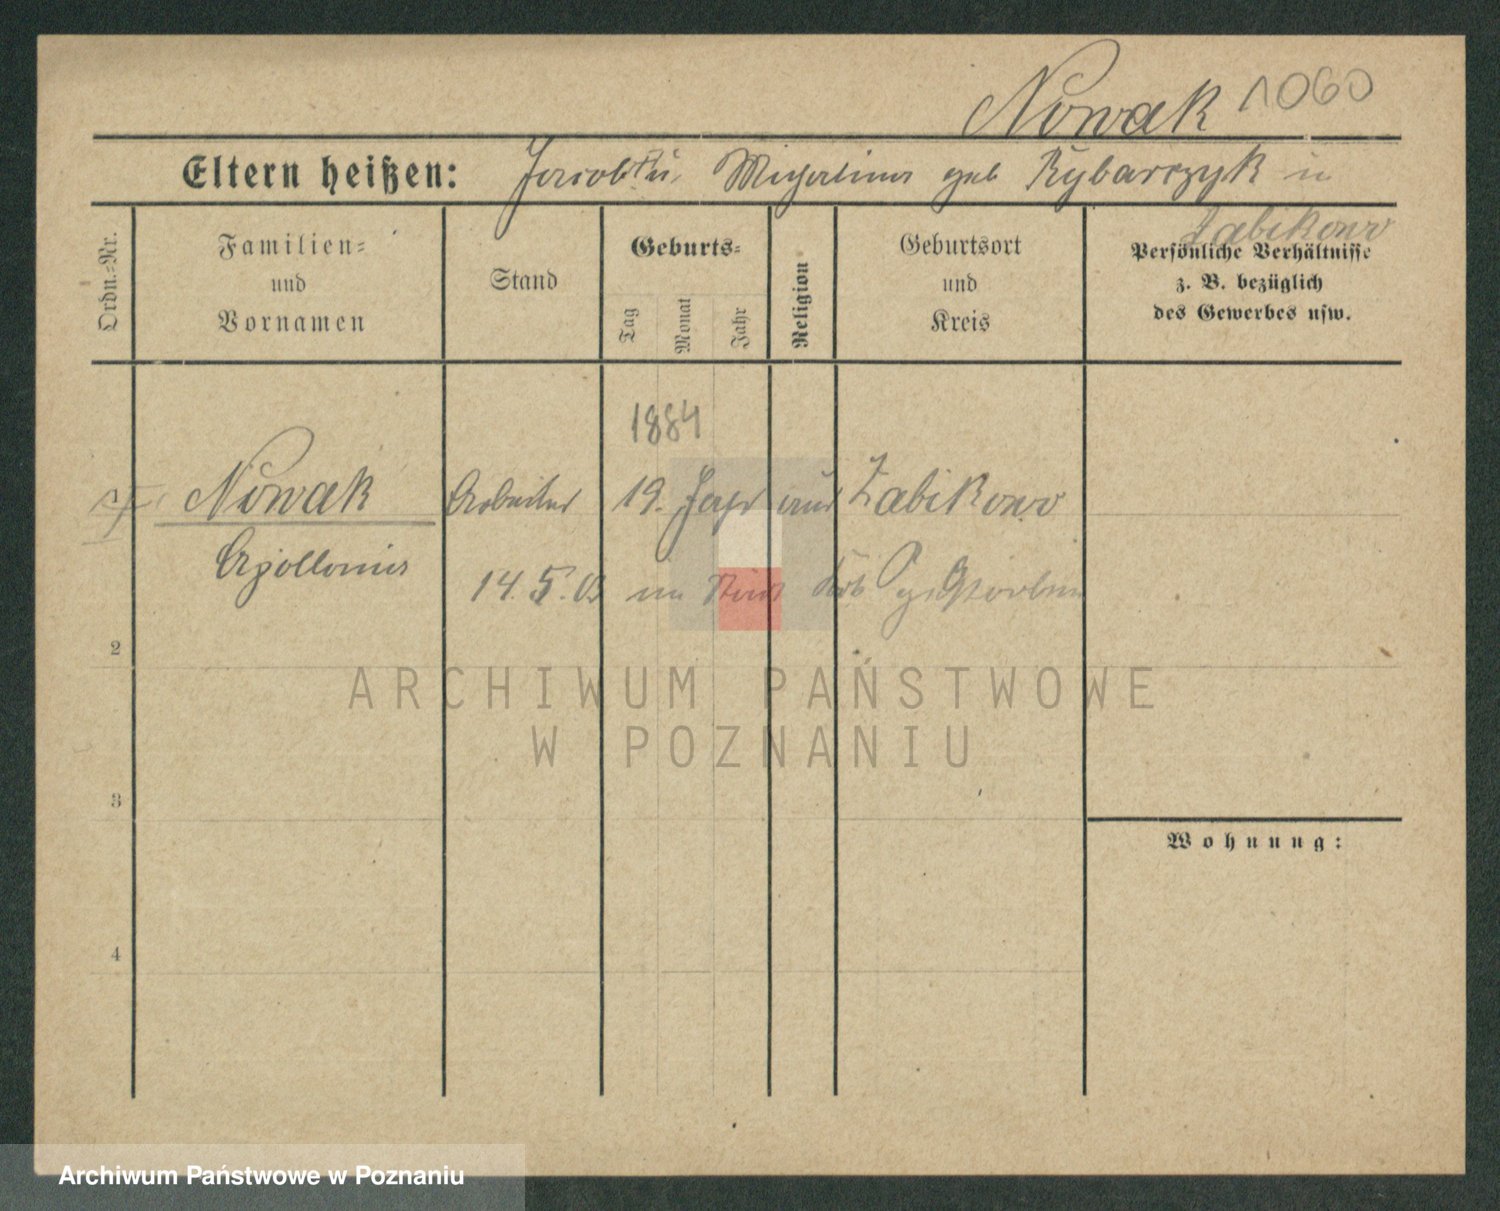 Nowak 1060
Eltern heißen: Jacob u. Michalina geb Rybarczyk in
Zabikowo
Ordn.-Nr.
Familien-
und
Vornamen
Stand
Geburts-
Tag
Monat
Jahr
Religion
Geburtsort
und
Kreis
Persönliche Verhältnisse
z. B. bezüglich
des Gewerbes usw.
1884
Nowak Arbeiter 19. Jahr aus Zabikowo
Apollonius
14. 5. 03 im gestorben
2
3
4
Wohnung:
ARCHIWUM PAŃSTWOWE
W POZNANIU
Archiwum Państwowe w Poznaniu